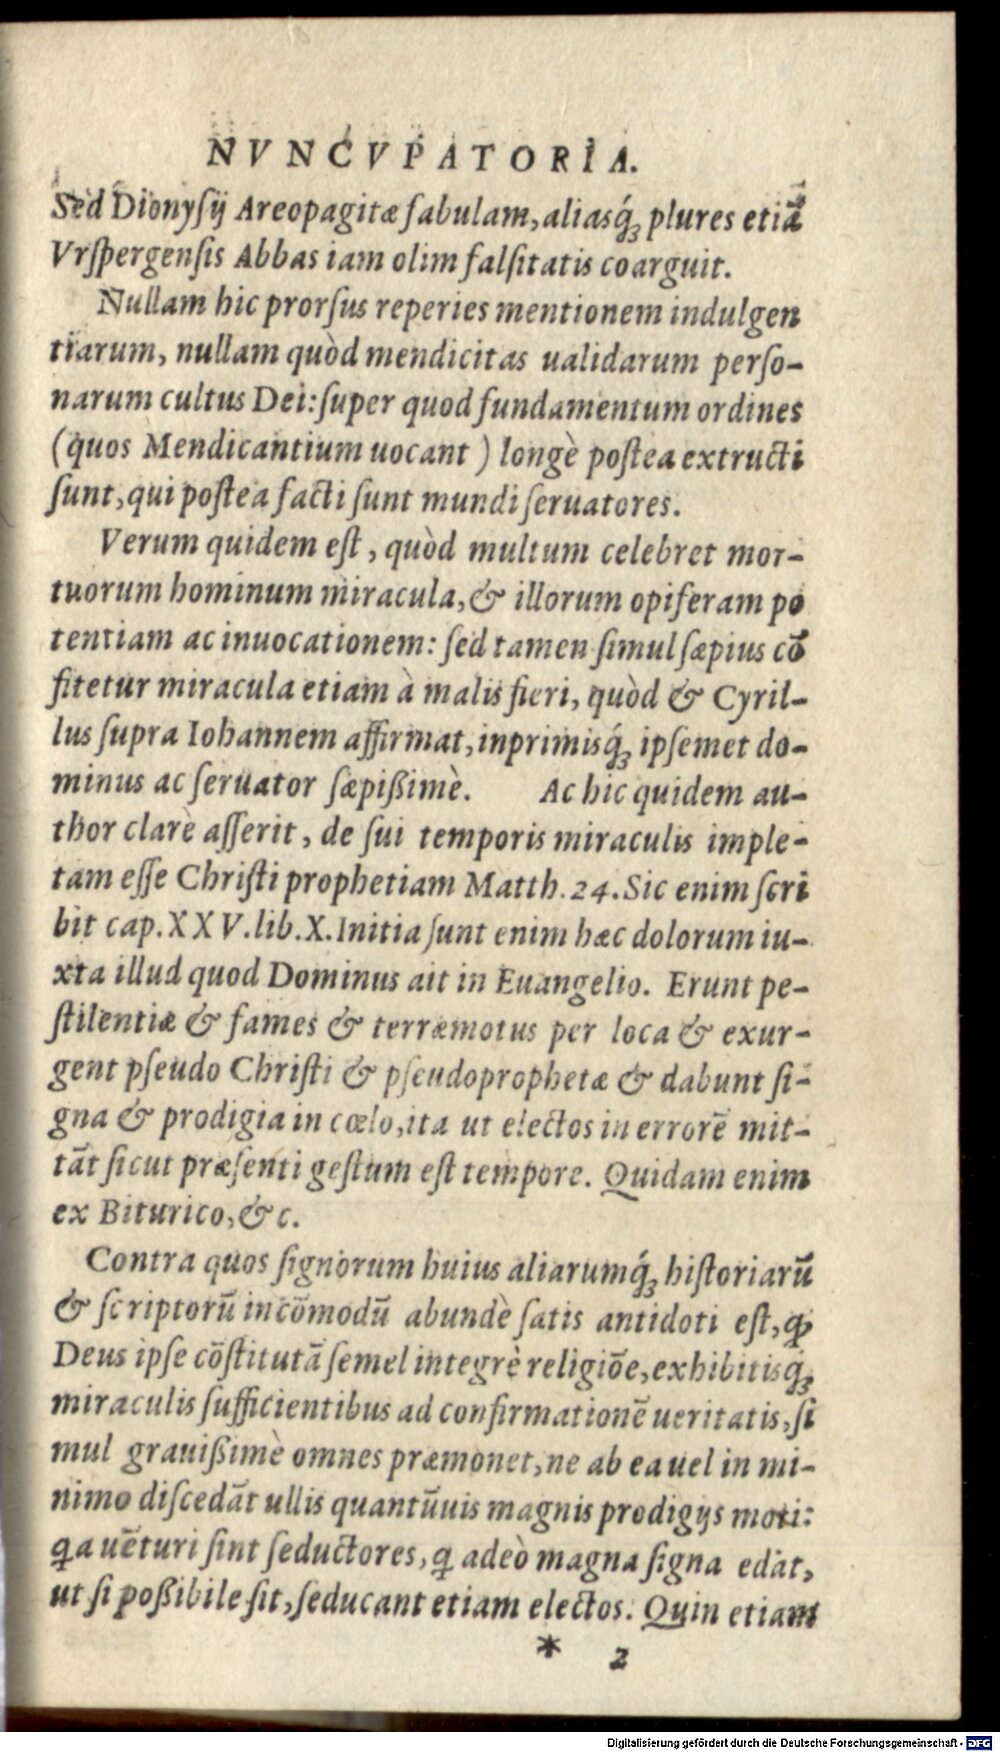 NVNCVPATORIA.
Sed Dionysij Areopagitæ fabulam, aliasq́ꝫ plures etiã
Vrspergensis Abbas iam olim falsitatis coarguit.
Nullam hic prorsus reperies mentionem indulgen
tiarum, nullam quòd mendicitas ualidarum perso-
narum cultus Dei: super quod fundamentum ordines
(quos Mendicantium uocant) longè postea extructi
sunt, qui postea facti sunt mundi seruatores.
Verum quidem est, quòd multum celebret mor-
tuorum hominum miracula, & illorum opiferam po
tentiam ac inuocationem: sed tamen simul sæpius cõ
fitetur miracula etiam à malis fieri, quòd & Cyril-
lus supra Iohannem affirmat, inprimisq́ꝫ ipsemet do-
minus ac seruator sæpißimè. Ac hic quidem au-
thor clarè asserit, de sui temporis miraculis imple-
tam esse Christi prophetiam Matth. 24. Sic enim scri
bit cap. XXV. lib. X. Initia sunt enim hæc dolorum iu-
xta illud quod Dominus ait in Euangelio. Erunt pe-
stilentiæ & fames & terræmotus per loca & exur-
gent pseudo Christi & pseudoprophetæ & dabunt si-
gna & prodigia in cœlo, ita ut electos in errorẽ mit-
tãt sicut præsenti gestum est tempore. Quidam enim
ex Biturico, &c.
Contra quos signorum huius aliarumq́ꝫ historiarũ
& scriptorũ incõmodũ abundè satis antidoti est, ꝙ
Deus ipse cõstitutã semel integrè religiõe, exhibitisq́ꝫ
miraculis sufficientibus ad confirmationẽ ueritatis, si
mul grauißimè omnes præmonet, ne ab ea uel in mi-
nimo discedãt ullis quantũuis magnis prodigijs moti:
ꝗa uẽturi sint seductores, ꝗ adeò magna signa edãt,
ut si poßibile sit, seducant etiam electos. Quin etiam
* 2
Digitalisierung gefördert durch die Deutsche Forschungsgemeinschaft - DFG